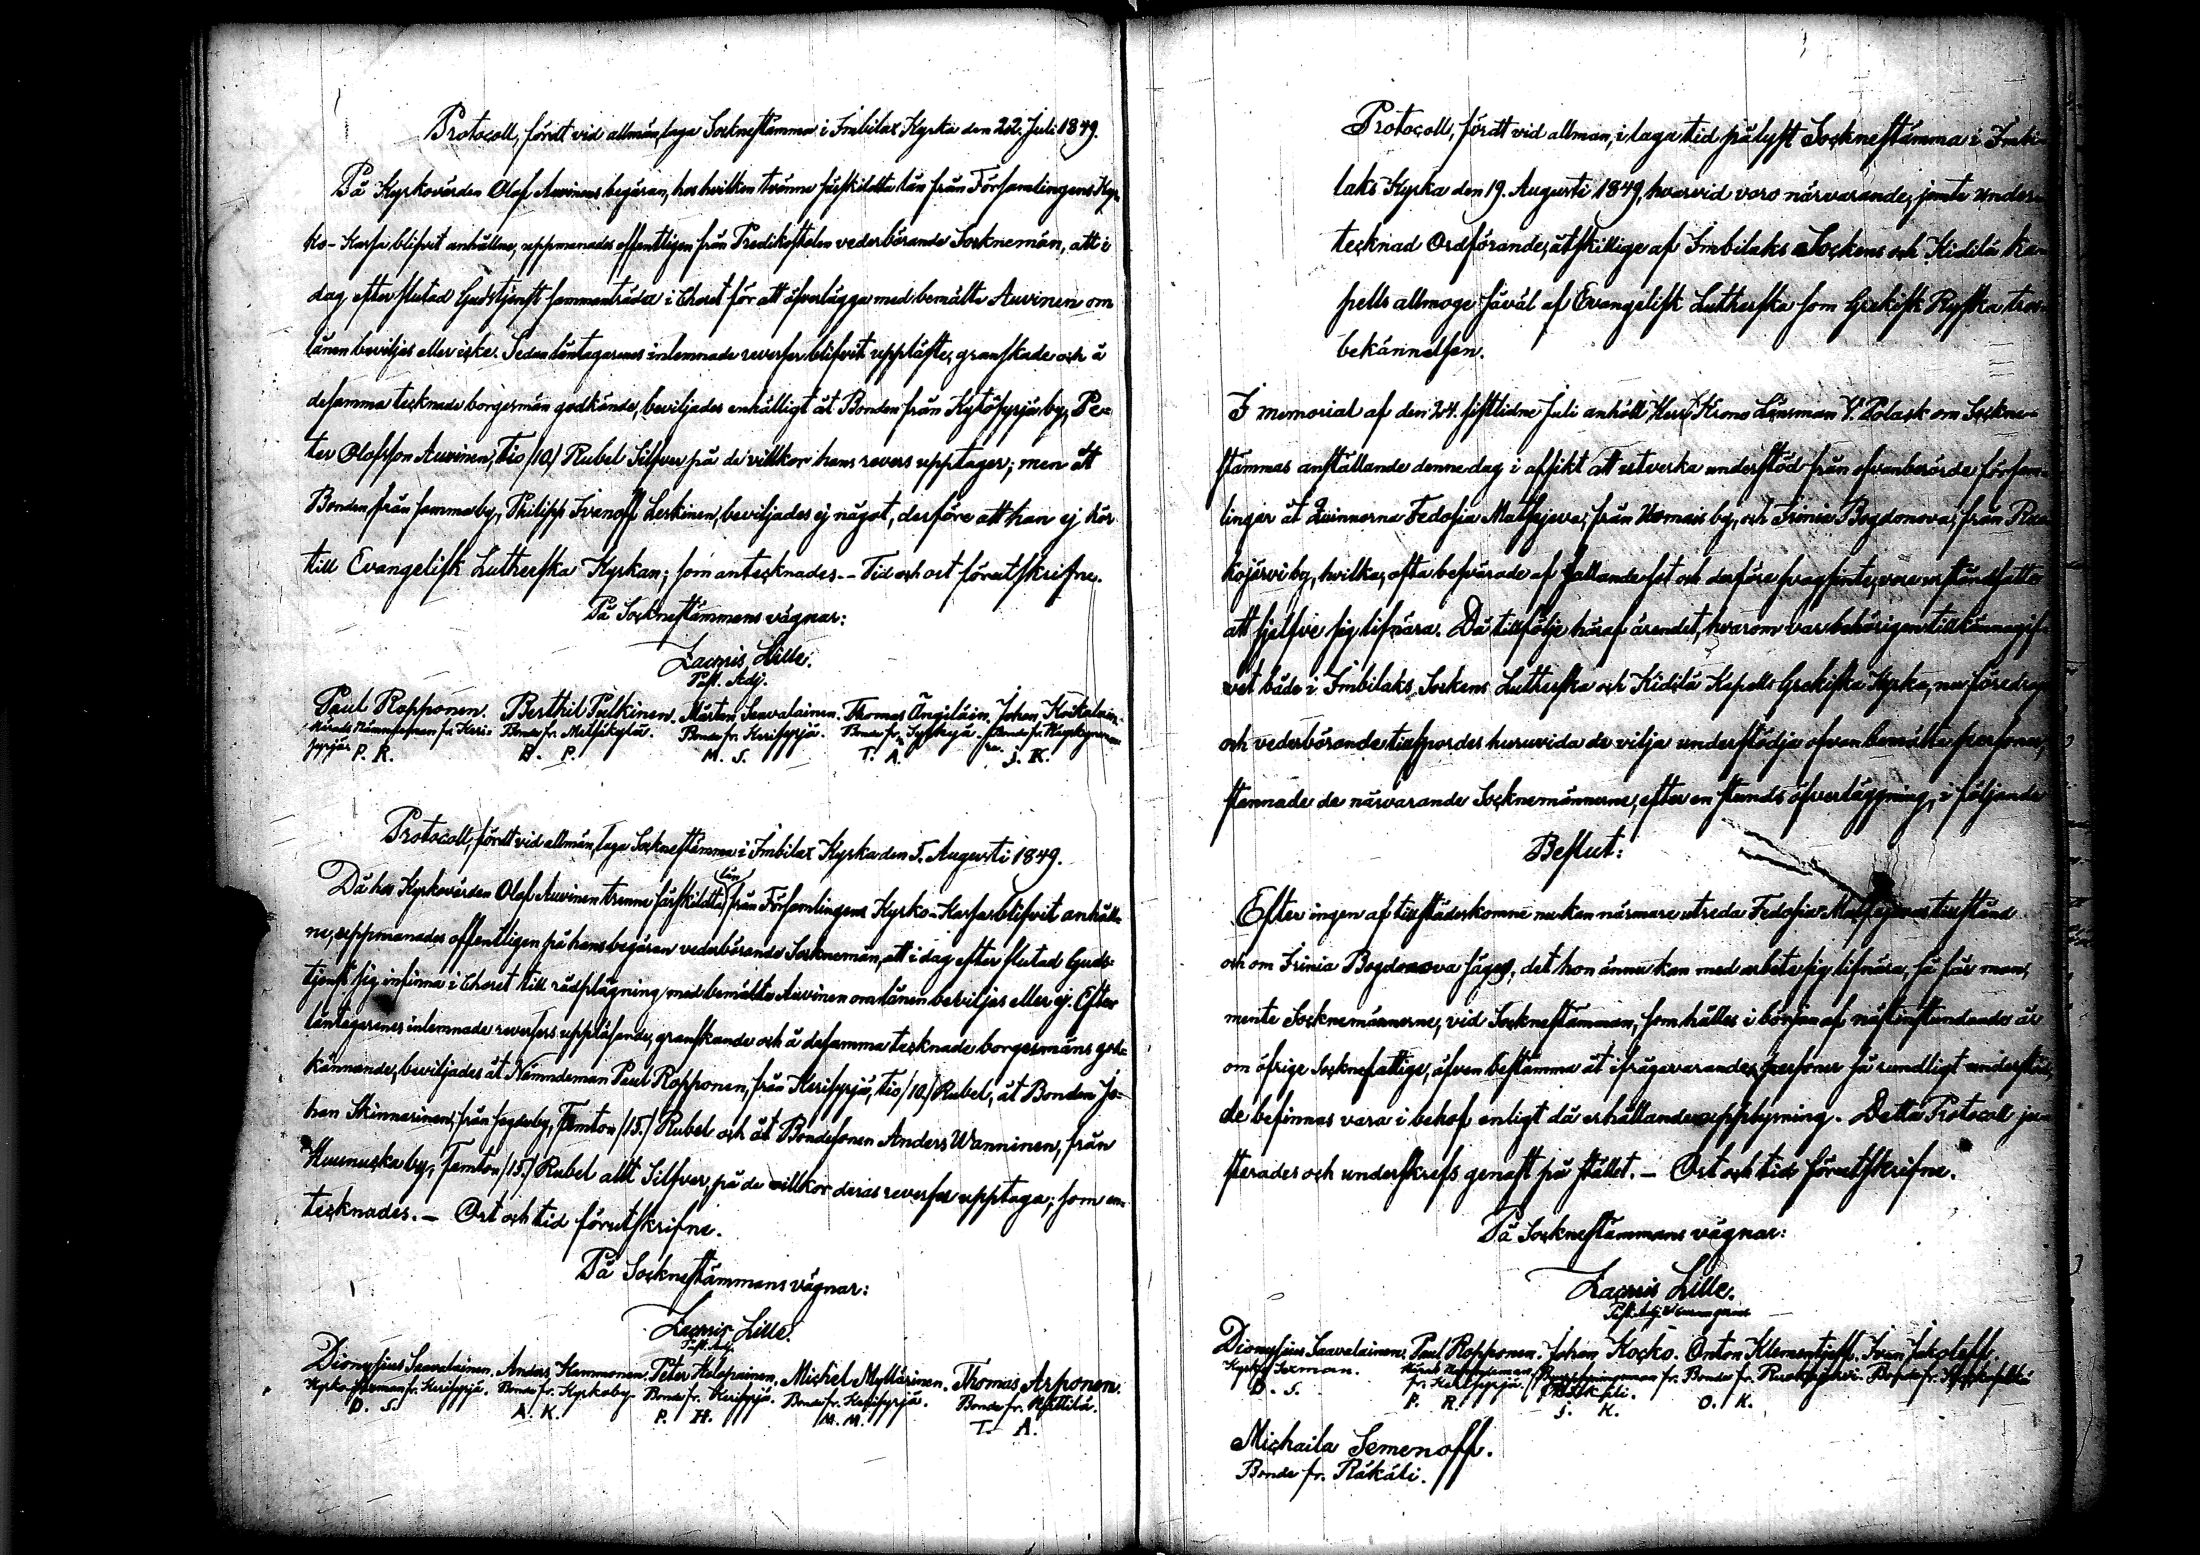 Protocoll, fördt vid allmän, laga Sockneståmma i Imbilax Kyrka den 22. Juli 1849.
På Kyrkovärden Olof Auvinens begäran, hos hvilken tvänne särskildta lån från Församlingens Kyr-
ko-Kassa blifvit anhållne, uppmanades offentligen från Predikstolen vederbörande Socknemän, att i
dag, efter slutad Gudstjenst sammanträda i Choret för att öfverlägga med bemälte Auvinen om
lånen beviljas eller icke. Sedan låntagarenes inlemnade reverser blifvit uppläste, granskade och å
desamma tecknade borgesmän godkände, beviljades enhälligt åt Bonden från Kytösyrjä by, Pe-
ter Olofsson Auvinen, Tio /10./ Rubel Silfver på de villkor hans revers upptager; men åt
Bonden från samma by, Philipp Ivanoff Leskinen, beviljades ej något, derföre att han ej hör
till Evangelisk Lutherska Kyrkan; som antecknades. - Tid och ort förutskrifne.
På Socknestämmans vägnar:
Zacris Lille.
Past. Adj.
Paul Ropponen. Berthil Pulkinen. Mårten Saavalainen. Thomas Ängiläin. Johan Koskelain.
Härads Nämndeman fr. Keri- Bonde fr. Metsäkylä. Bonde fr. Kerisyrjä. Bonde fr. Syskyjä. Bonde fr.
syrjä. P. R. B. P. M. S. T. A. J. K.
Protocoll, fördt vid allmän, laga Socknestämma i Imbilax Kyrka den 5. Augusti 1849.
Då hos Kyrkovärden Olof Auvinen trenne särskildta lån från Församlingens Kyrko-Kassa blifvit anhåll-
ne, uppmanades offentligen på hans begäran vederbörande Socknemän, att i dag efter slutad Guds-
tjenst sig infinna i Choret till rådplägning med bemälte Auvinen om lånen beviljas eller ej. Efter
låntagarenes inlemnade reversers uppläsande, granskande och å desamma tecknade borgesmäns god-
kännande, beviljades åt Nämndeman Paul Ropponen, från Kerisyrjä, Tio /10./ Rubel, åt Bonden Jo-
han Skinnarinen, från by, Femton /15./ Rubel och åt Bondesonen Anders Wanninen, från
Huunuka by, Femton /15./ Rubel allt Silfver, på de villkor deras reverser upptaga; som an-
tecknades. - Ort och tid förutskrifne.
På Socknestämmans vägnar:
Zacris Lille.
Past. Adj.
Dionysius Saavalainen. Anders Hammonen. Peter Holopainen. Michel Myllärinen. Thomas Arponen.
Kyrko Sexman fr. Kerisyrjä. Bonde fr. Kyrkoby. Bonde fr. Kerisyrjä. Bonde fr. Kerisyrjä. Bonde fr.
D. S. A. K. P. H. M. M. T. A.
Protocoll, fördt vid allmän, i laga tid pålyst Socknestämma i Imbi-
laks Kyrka den 19. Augusti 1849, hvarvid voro närvarande, jemte under-
tecknad Ordförande, åtskillige af Imbilaks Sockens och Kidilä Ka-
pells allmoge såväl af Evangelisk Lutherska som Grekisk Ryska tros-
bekännelsen.
I memorial af den 24. sistlidne Juli anhöll Herr Krono Länsman V. Polack om Sockne-
stämmas anställande denne dag i afsikt att utverka understöd från ofvanberörde försam-
lingar åt Quinnorna Fedosia Matfejeva, från Uomais by, och Irinia Bogdonova, från Rua-
kojärvi by, hvilka, ofta besvärade af fallandesot och derföre svagsinte, vore urståndsatte
att sjelfve sig lifnära. Då tillfölje häraf ärendet, hvarom var behörigen tillkännagif-
vet både i Imbilaks Sockens Lutherska och Kidilä Kapells Grekiska Kyrka, nu föredrogs
och vederbörande tillspordes huruvida de vilja understödja ofvanbemälta personer,
stannade de närvarande Socknemännerne, efter en stunds öfverläggning, i följande
Beslut:
Efter ingen af tillstädeskomne nu kan närmare utreda Fedosia Matfejevas tillstånd
och om Irinia Bogdonova säges, det hon ännu kan med arbete sig lifnära, så får man,
mente Socknemännerne, vid Socknestämman, som hålles i början af nästinstundande år
om öfrige Socknefattige, äfven bestämma åt ifrågavarande personer så rundligt understöd,
de befinnas vara i behof enligt då erhållande upplysning. Detta Protocoll ju-
sterades och underskrefs genast på stället. - Ort och tid förutskrifne.
På Socknestämmans vägnar:
Zacris Lille.
Past. Adj.
Dionysius Saavalainen. Paul Ropponen. Johan Kocko. Onton Klementjeff. Ivan Jakoleff
Kyrko Sexman. Härads Nämndeman fr. Bonde fr. Ruokojärvi. Bonde fr.
fr. Kerisyrjä.
D. S. P. R. J. K. O. K.
Michaila Semenoff.
Bonde fr. Räkäli.